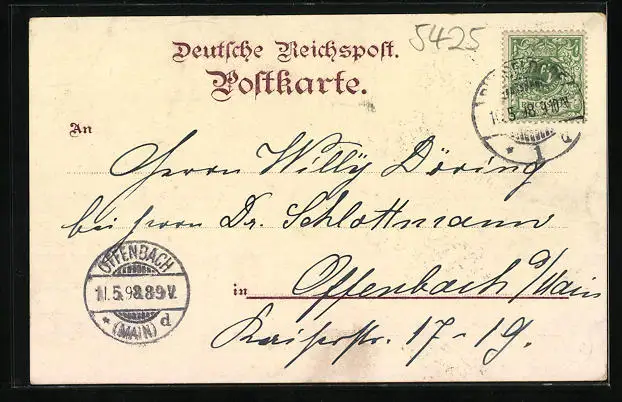 5425
Deutsche Reichspost.
Postkarte.
An
Herrn Willy Döring
bei Herrn Dr. Schlottmann
in Offenbach a/Main
Kaiserstr. 17-19.
OFFENBACH
11.5.98.8-9V.
* (MAIN) d
5.98 9-10
* 1 d